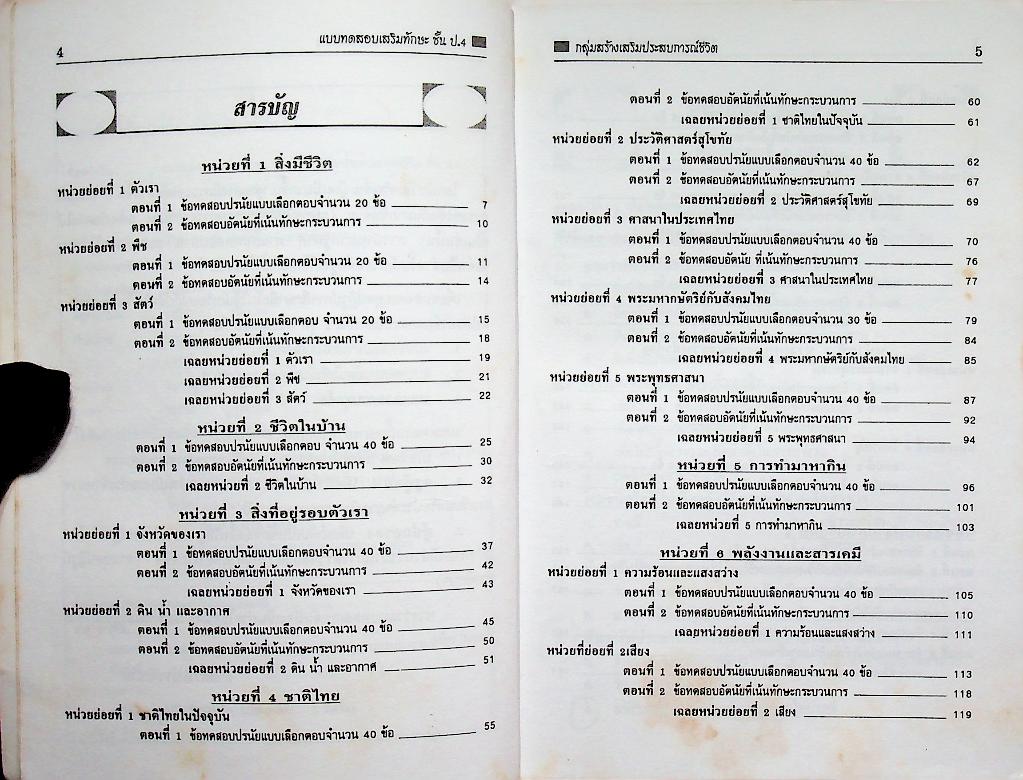 4
แบบทดสอบเสริมทักษะ ชั้น ป.4
สารบัญ
หน่วยที่ 1 สิ่งมีชีวิต
หน่วยย่อยที่ 1 ตัวเรา
ตอนที่ 1 ข้อทดสอบปรนัยแบบเลือกตอบจำนวน 20 ข้อ 7
ตอนที่ 2 ข้อทดสอบอัตนัยที่เน้นทักษะกระบวนการ 10
หน่วยย่อยที่ 2 พืช
ตอนที่ 1 ข้อทดสอบปรนัยแบบเลือกตอบจำนวน 20 ข้อ 11
ตอนที่ 2 ข้อทดสอบอัตนัยที่เน้นทักษะกระบวนการ 14
หน่วยย่อยที่ 3 สัตว์
ตอนที่ 1 ข้อทดสอบปรนัยแบบเลือกตอบ จำนวน 20 ข้อ 15
ตอนที่ 2 ข้อทดสอบอัตนัยที่เน้นทักษะกระบวนการ 18
เฉลยหน่วยย่อยที่ 1 ตัวเรา 19
เฉลยหน่วยย่อยที่ 2 พืช 21
เฉลยหน่วยย่อยที่ 3 สัตว์ 22
หน่วยที่ 2 ชีวิตในบ้าน
ตอนที่ 1 ข้อทดสอบปรนัยแบบเลือกตอบ จำนวน 40 ข้อ 25
ตอนที่ 2 ข้อทดสอบอัตนัยที่เน้นทักษะกระบวนการ 30
เฉลยหน่วยที่ 2 ชีวิตในบ้าน 32
หน่วยที่ 3 สิ่งที่อยู่รอบตัวเรา
หน่วยย่อยที่ 1 จังหวัดของเรา
ตอนที่ 1 ข้อทดสอบปรนัยแบบเลือกตอบจำนวน 40 ข้อ 37
ตอนที่ 2 ข้อทดสอบอัตนัยที่เน้นทักษะกระบวนการ 42
เฉลยหน่วยย่อยที่ 1 จังหวัดของเรา 43
หน่วยย่อยที่ 2 ดิน น้ำ และอากาศ
ตอนที่ 1 ข้อทดสอบปรนัยแบบเลือกตอบจำนวน 40 ข้อ 45
ตอนที่ 2 ข้อทดสอบอัตนัยที่เน้นทักษะกระบวนการ 50
เฉลยหน่วยย่อยที่ 2 ดิน น้ำ และอากาศ 51
หน่วยที่ 4 ชาติไทย
หน่วยย่อยที่ 1 ชาติไทยในปัจจุบัน
ตอนที่ 1 ข้อทดสอบปรนัยแบบเลือกตอบจำนวน 40 ข้อ 55
กลุ่มสร้างเสริมประสบการณ์ชีวิต
5
ตอนที่ 2 ข้อทดสอบอัตนัยที่เน้นทักษะกระบวนการ 60
เฉลยหน่วยย่อยที่ 1 ชาติไทยในปัจจุบัน 61
หน่วยย่อยที่ 2 ประวัติศาสตร์สุโขทัย
ตอนที่ 1 ข้อทดสอบปรนัยแบบเลือกตอบจำนวน 40 ข้อ 62
ตอนที่ 2 ข้อทดสอบอัตนัยที่เน้นทักษะกระบวนการ 67
เฉลยหน่วยย่อยที่ 2 ประวัติศาสตร์สุโขทัย 69
หน่วยย่อยที่ 3 ศาสนาในประเทศไทย
ตอนที่ 1 ข้อทดสอบปรนัยแบบเลือกตอบจำนวน 40 ข้อ 70
ตอนที่ 2 ข้อทดสอบอัตนัย ที่เน้นทักษะกระบวนการ 76
เฉลยหน่วยย่อยที่ 3 ศาสนาในประเทศไทย 77
หน่วยย่อยที่ 4 พระมหากษัตริย์กับสังคมไทย
ตอนที่ 1 ข้อทดสอบปรนัยแบบเลือกตอบจำนวน 30 ข้อ 79
ตอนที่ 2 ข้อทดสอบอัตนัยที่เน้นทักษะกระบวนการ 84
เฉลยหน่วยย่อยที่ 4 พระมหากษัตริย์กับสังคมไทย 85
หน่วยย่อยที่ 5 พระพุทธศาสนา
ตอนที่ 1 ข้อทดสอบปรนัยแบบเลือกตอบจำนวน 40 ข้อ 87
ตอนที่ 2 ข้อทดสอบอัตนัยที่เน้นทักษะกระบวนการ 92
เฉลยหน่วยย่อยที่ 5 พระพุทธศาสนา 94
หน่วยที่ 5 การทำมาหากิน
ตอนที่ 1 ข้อทดสอบปรนัยแบบเลือกตอบจำนวน 40 ข้อ 96
ตอนที่ 2 ข้อทดสอบอัตนัยที่เน้นทักษะกระบวนการ 101
เฉลยหน่วยที่ 5 การทำมาหากิน 103
หน่วยที่ 6 พลังงานและสารเคมี
หน่วยย่อยที่ 1 ความร้อนและแสงสว่าง
ตอนที่ 1 ข้อทดสอบปรนัยแบบเลือกตอบจำนวน 40 ข้อ 105
ตอนที่ 2 ข้อทดสอบอัตนัยที่เน้นทักษะกระบวนการ 110
เฉลยหน่วยย่อยที่ 1 ความร้อนและแสงสว่าง 111
หน่วยที่ย่อยที่ 2เสียง
ตอนที่ 1 ข้อทดสอบปรนัยแบบเลือกตอบจำนวน 40 ข้อ 113
ตอนที่ 2 ข้อทดสอบอัตนัยที่เน้นทักษะกระบวนการ 118
เฉลยหน่วยย่อยที่ 2 เสียง 119